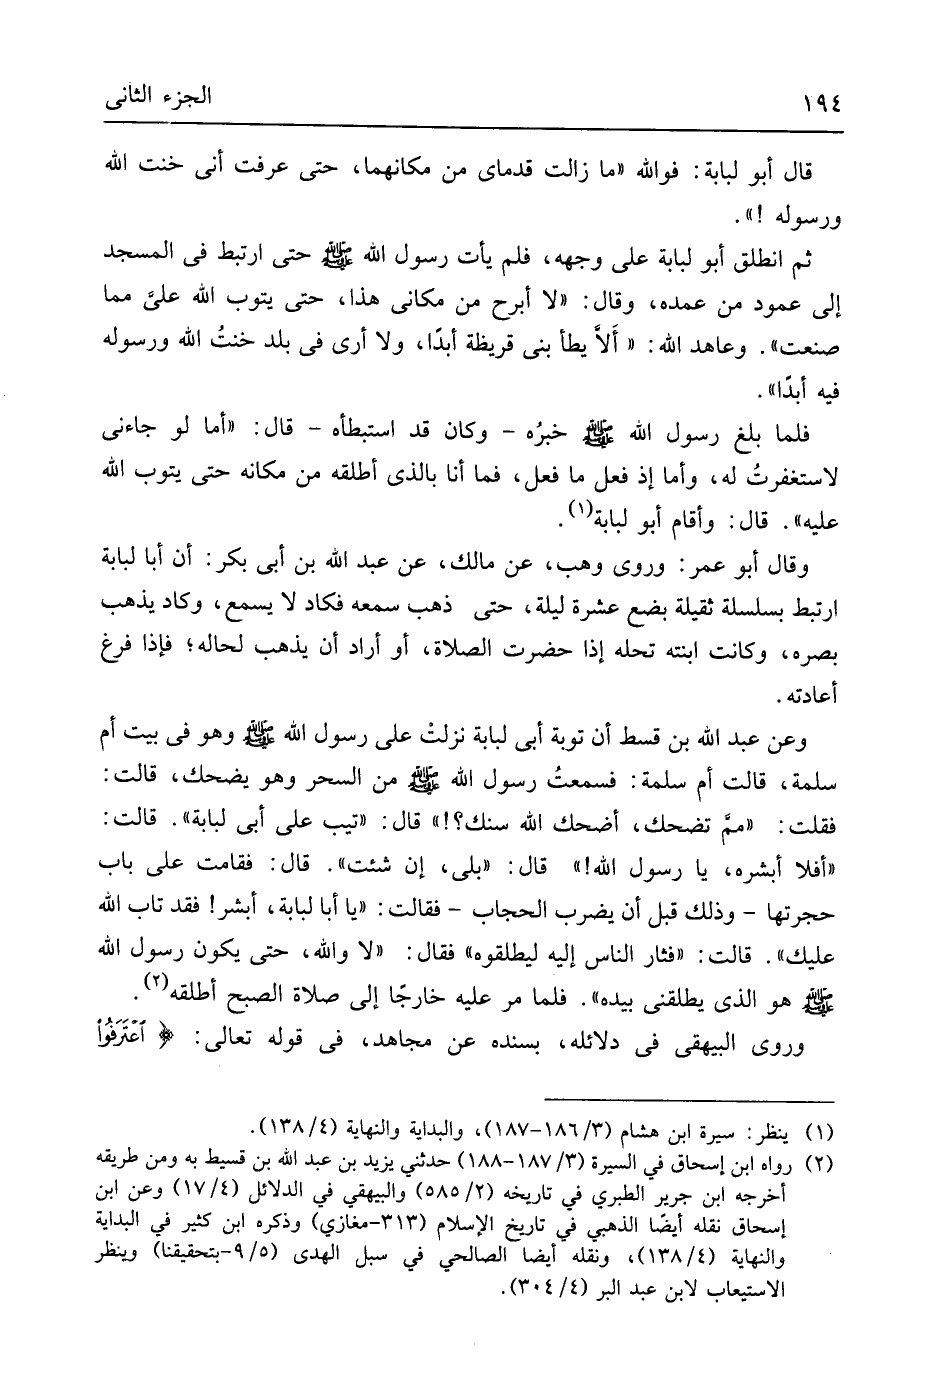 ١٩٤
الجزء الثانى
قال أبو لبابة: فوالله «ما زالت قدماى من مكانهما، حتى عرفت أنى خنت الله
ورسوله !».
ثم انطلق أبو لبابة على وجهه، فلم يأت رسول الله ﷺ حتى ارتبط فى المسجد
إلى عمود من عمده، وقال: «لا أبرح من مكانى هذا، حتى يتوب الله علىَّ مما
صنعت». وعاهد الله: « أَلاَّ يطأ بنى قريظة أبدًا، ولا أرى فى بلد خنتُ الله ورسوله
فيه أبدًا».
فلما بلغ رسول الله ﷺ خبرُه - وكان قد استبطأه - قال: «أما لو جاءنى
لاستغفرتُ له، وأما إذ فعل ما فعل، فما أنا بالذى أطلقه من مكانه حتى يتوب الله
عليه». قال: وأقام أبو لبابة(١).
وقال أبو عمر: وروى وهب، عن مالك، عن عبد الله بن أبى بكر: أن أبا لبابة
ارتبط بسلسلة ثقيلة بضع عشرة ليلة، حتى ذهب سمعه فكاد لا يسمع، وكاد يذهب
بصره، وكانت ابنته تحله إذا حضرت الصلاة، أو أراد أن يذهب لحاله؛ فإذا فرغ
أعادته.
وعن عبد الله بن قسط أن توبة أبى لبابة نزلتْ على رسول الله ﷺ وهو فى بيت أم
سلمة، قالت أم سلمة: فسمعتُ رسول الله ﷺ من السحر وهو يضحك، قالت:
فقلت: «ممَّ تضحك، أضحك الله سنك؟!» قال: «تيب على أبى لبابة». قالت:
«أفلا أبشره، يا رسول الله!» قال: «بلى، إن شئت». قال: فقامت على باب
حجرتها - وذلك قبل أن يضرب الحجاب - فقالت: «يا أبا لبابة، أبشر! فقد تاب الله
عليك». قالت: «فثار الناس إليه ليطلقوه» فقال: «لا والله، حتى يكون رسول الله
ﷺ هو الذى يطلقنى بيده». فلما مر عليه خارجًا إلى صلاة الصبح أطلقه(٢).
وروى البيهقى فى دلائله، بسنده عن مجاهد، فى قوله تعالى: ﴿ ٱعۡتَرَفُواْ
(١) ينظر: سيرة ابن هشام (٣/ ١٨٦-١٨٧)، والبداية والنهاية (٤/ ١٣٨).
(٢) رواه ابن إسحاق في السيرة (٣/ ١٨٧-١٨٨) حدثني يزيد بن عبد الله بن قسيط به ومن طريقه
أخرجه ابن جرير الطبري في تاريخه (٢/ ٥٨٥) والبيهقي في الدلائل (٤/ ١٧) وعن ابن
إسحاق نقله أيضًا الذهبي في تاريخ الإسلام (٣١٣-مغازي) وذكره ابن كثير في البداية
والنهاية (٤/ ١٣٨)، ونقله أيضا الصالحي في سبل الهدى (٥/ ٩-بتحقيقنا) وينظر
الاستيعاب لابن عبد البر (٤/ ٣٠٤).